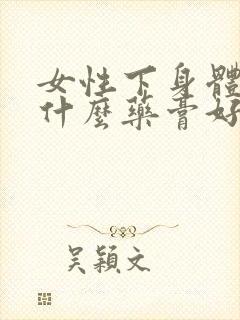 女性下身體
什麼藥膏好
吳穎文